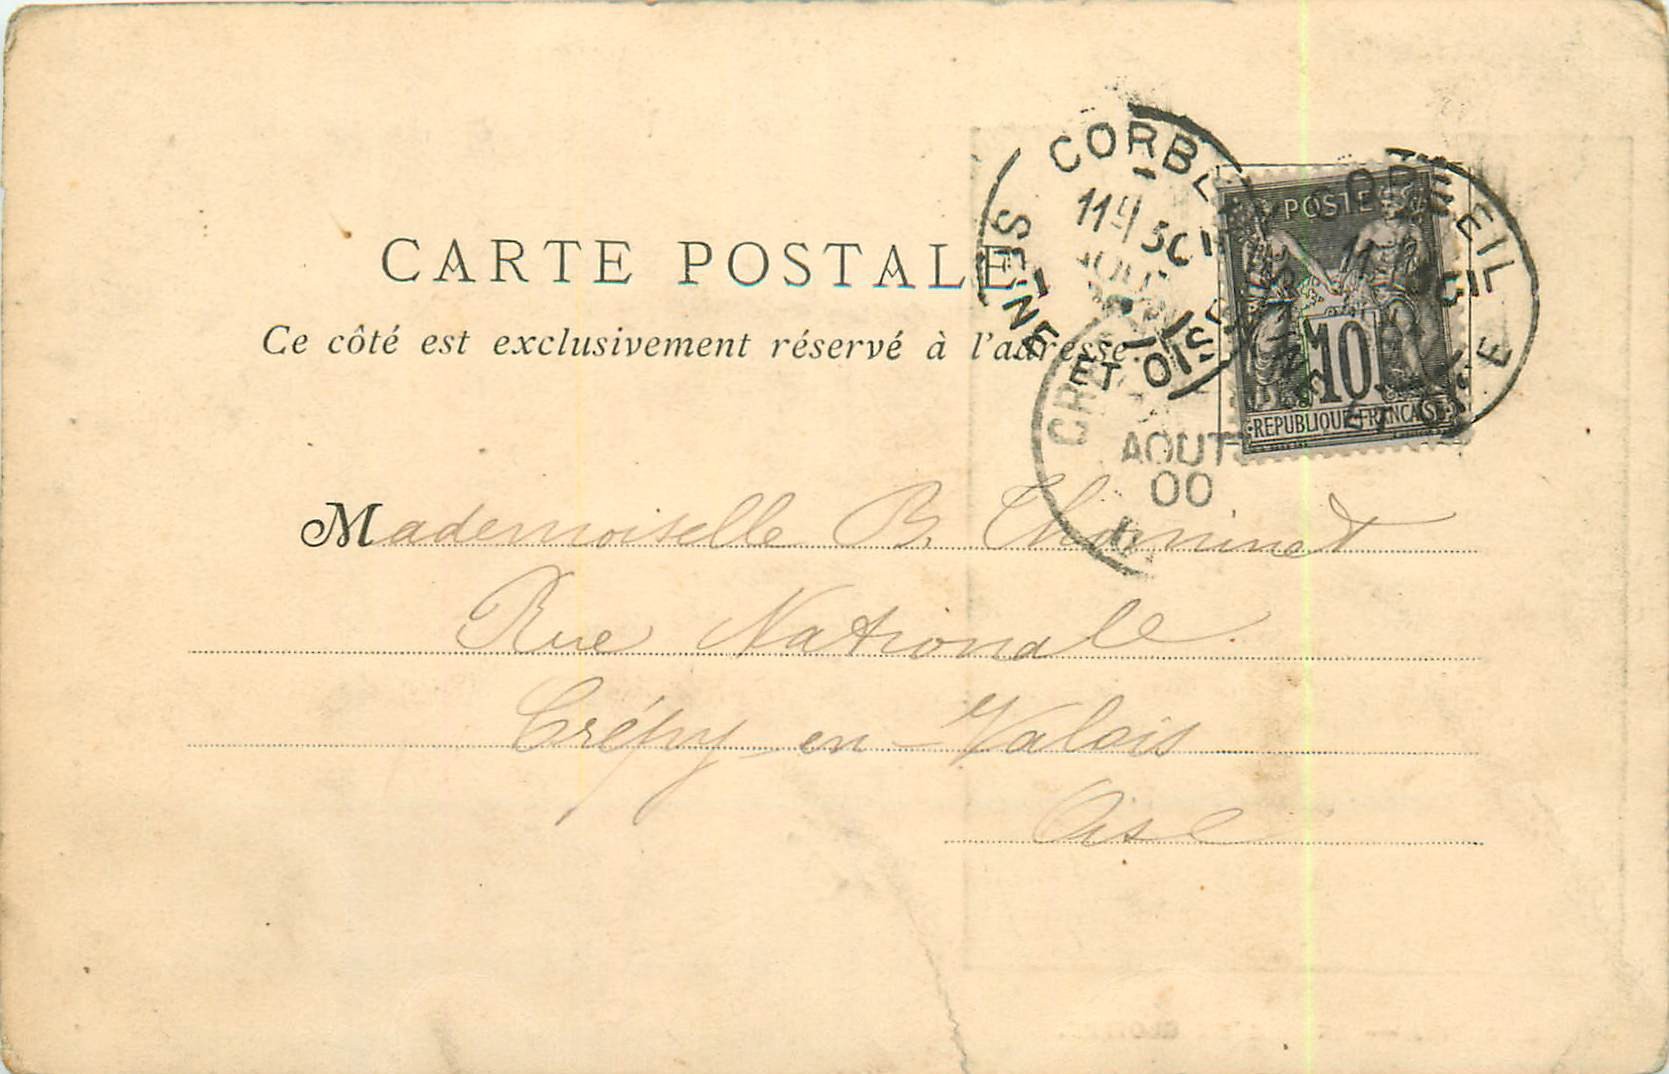 CARTE POSTALE
Ce côté est exclusivement réservé à l'adresse.
CORBEIL
11 H 30
AOUT
SEINE ET OISE
POSTE
10
REPUBLIQUE FRANCAISE
CORBEIL
SEINE ET OISE
AOUT
00
Mademoiselle B. Thominet
Rue Nationale.
Crépy-en-Valois
Oise